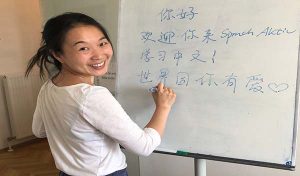 你好
欢迎你来 Sprach Aktiv
学习中文!
世界因你有爱♡